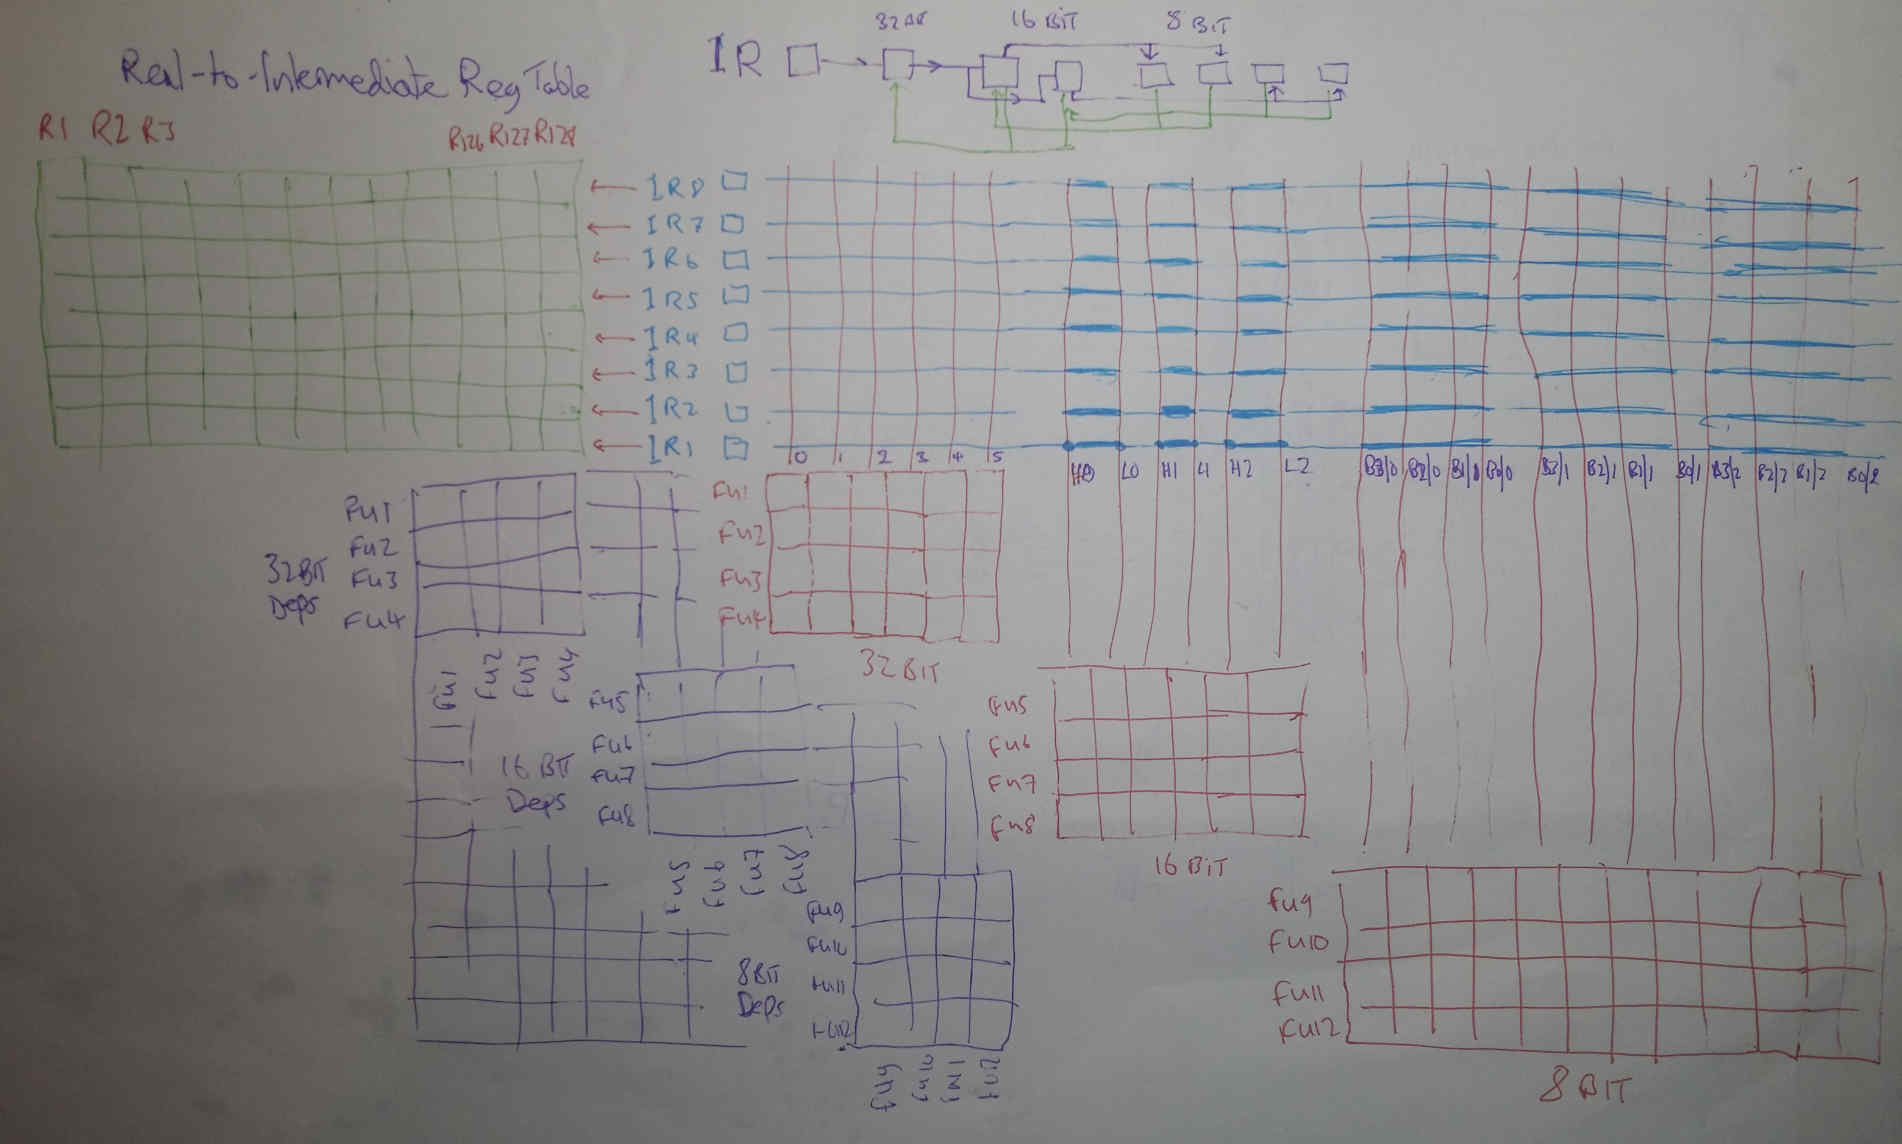 32Bit 16 BiT 8 BiT
IR
Real-to-Intermediate Reg Table
R1 R2 R3 R126 R127 R128
IR8
IR7
IR6
IR5
IR4
IR3
IR2
IR1
0 1 2 3 4 5
H0 L0 H1 L1 H2 L2
B3/0 B2/0 B1/0 B0/0 B3/1 B2/1 B1/1 B0/1 B3/2 B2/2 B1/2 B0/2
32BIT
Deps
Fu1
Fu2
Fu3
Fu4
Fu1 Fu2 Fu3 Fu4
Fu1
Fu2
Fu3
Fu4
32BIT
16 BIT
Deps
Fu5
Fu6
Fu7
Fu8
Fu5 Fu6 Fu7 Fu8
Fu5
Fu6
Fu7
Fu8
16 BIT
8BIT
Deps
Fu9
Fu10
Fu11
Fu12
Fu9 Fu10 Fu11 Fu12
Fu9
Fu10
Fu11
Fu12
8 BIT